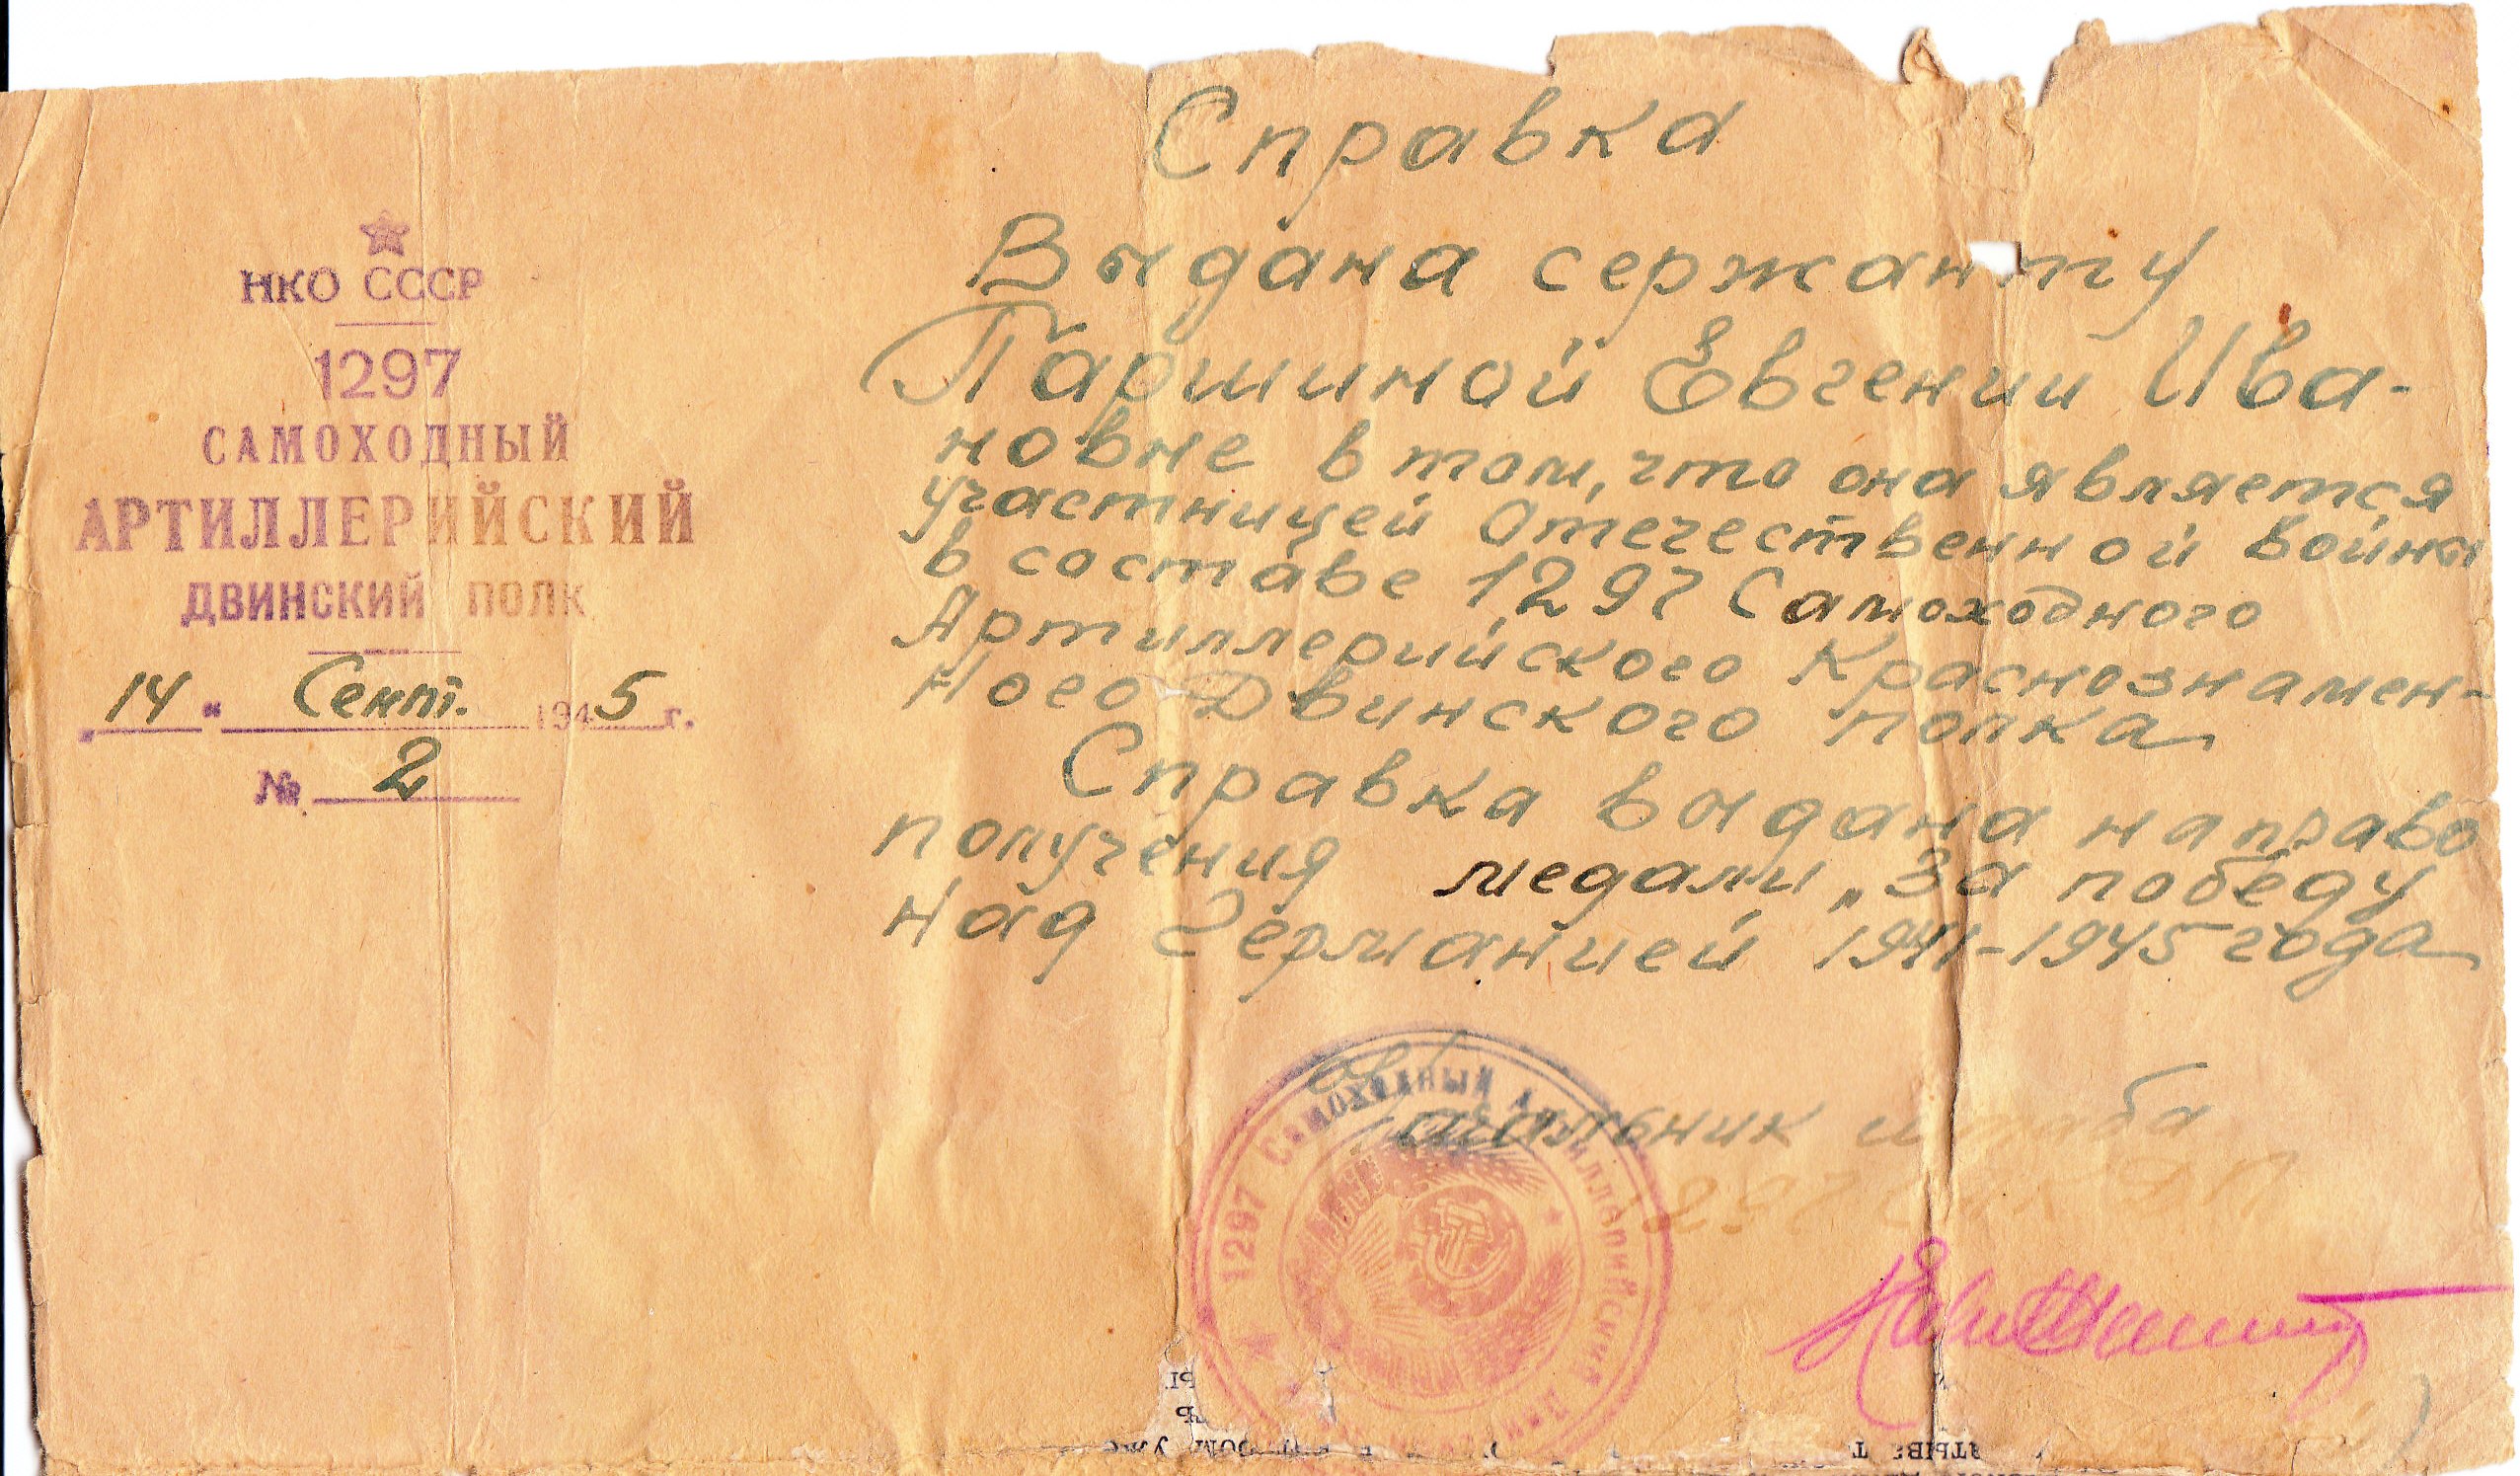 НКО СССР
1297
САМОХОДНЫЙ
АРТИЛЛЕРИЙСКИЙ
ДВИНСКИЙ ПОЛК
„14“ Сент. 1945 г.
№ 2
Справка
Выдана сержанту
Паршиной Евгении Ива-
новне в том, что она является
участницей Отечественной войны
в составе 1297 Самоходного
Артиллерийского Краснознамен-
ного Двинского полка
Справка выдана на право
получения медали „За победу
над Германией 1941-1945 года
Начальник штаба
1297 Самоходный Артиллерийский